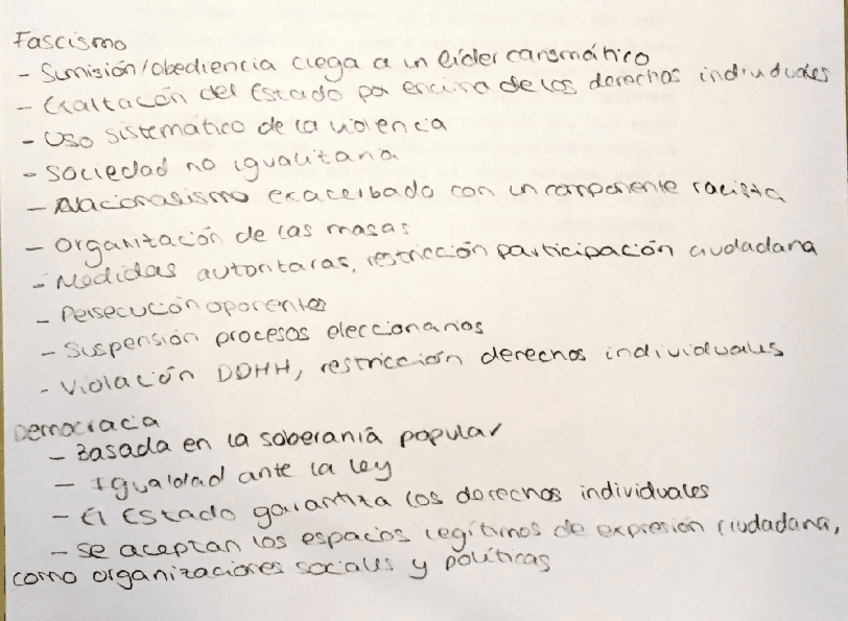 Fascismo
- Sumisión/obediencia ciega a un líder carismático
- Exaltación del Estado por encima de los derechos individuales
- Uso sistemático de la violencia
- Sociedad no igualitaria
- Nacionalismo exacerbado con un componente racista
- Organización de las masas
- Medidas autoritaras, restricción participación ciudadana
- Persecución oponentes
- Suspensión procesos eleccionarios
- Violación DDHH, restricción derechos individuales
Democracia
- Basada en la soberanía popular
- Igualdad ante la ley
- El Estado garantiza los derechos individuales
- Se aceptan los espacios legítimos de expresión ciudadana,
como organizaciones sociales y políticas